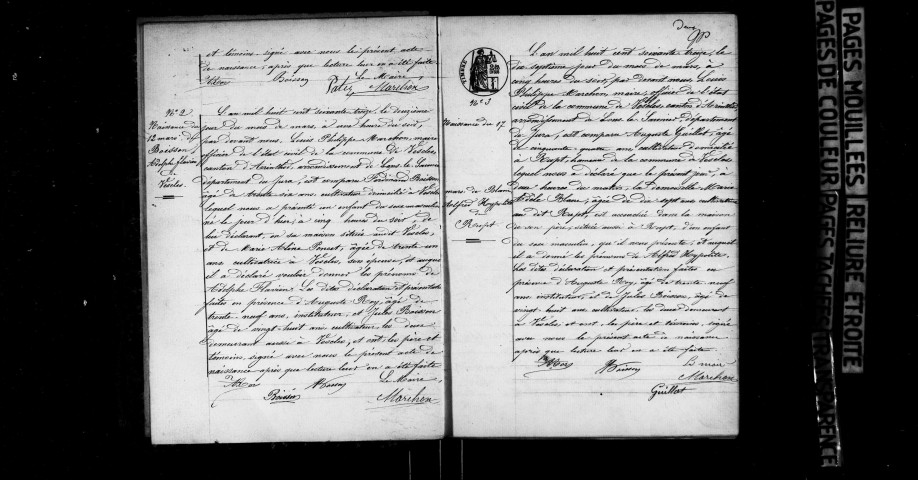 et témoins, signé avec nous le présent acte
de naissance, après que lecture leur en a été faite
Boisson Le Maire,
Marchon
N° 2
Naissance du
12 mars de
Boisson,
Adolphe Flavien
de
Vescles.
L'an mil huit cent soixante treize, le treizième
jour du mois de mars, à une heure du soir,
par devant nous, Louis Philippe Marchon, maire
officier de l'état civil de la commune de Vescles,
canton d'Arinthod, arrondissement de Lons le Saunier
département du Jura, est comparu Ferdinand Boisson
âgé de trente six ans, cultivateur domicilié à Vescles
lequel nous a présenté un enfant du sexe masculin
né le jour d'hier, à cinq heures du soir, de
lui déclarant, en sa maison située audit Vescles,
et de Marie Aline Poncet, âgée de trente un
ans cultivatrice à Vescles, son épouse, et auquel
il a déclaré vouloir donner les prénoms de
Adolphe Flavien. Les dites déclaration et présentation
faites en présence d'Auguste Roy, âgé de
trente neuf ans, instituteur, et Jules Boisson
âgé de vingt-huit ans cultivateur, les deux
demeurant aussi à Vescles, et ont les père et
témoins, signé avec nous le présent acte de
naissance après que lecture leur en a été faite
Le Maire,
Boisson Marchon
N° 3
Naissance du 17
mars de Blanc
Alfred Hyppolite
de
Rupt
L'an mil huit cent soixante treize, le
dix septième jour du mois de mars, à
cinq heures du soir, par devant nous, Louis
Philippe Marchon maire, officier de l'état
civil de la commune de Vescles, canton d'Arinthod
arrondissement de Lons le Saunier, département
du Jura, est comparu Auguste Guillot, âgé
de cinquante quatre ans cultivateur domicilié
à Rupt, hameau de la commune de Vescles
lequel nous a déclaré que le présent jour, à
deux heures du matin, la demoiselle Marie
Adèle Blanc, âgée de dix sept ans cultivatrice
audit Rupt, est accouchée dans la maison
de son père, située aussi à Rupt, d'un enfant
du sexe masculin, qu'il nous présente, et auquel
il a donné les prénoms de Alfred Hyppolite.
Les dites déclaration et présentation faites en
présence d'Auguste Roy, âgé de trente neuf
ans instituteur, et de Jules Boisson, âgé de
vingt huit ans cultivateur, les deux demeurant
à Vescles et ont, les père et témoins, signé
avec nous le présent acte de naissance
après que lecture leur en a été faite.
Boisson Le maire
Marchon
Guillot
PAGES MOUILLEES RELIURE ETROITE
PAGES DE COULEUR PAGES TACHEES TRANSPARENCE